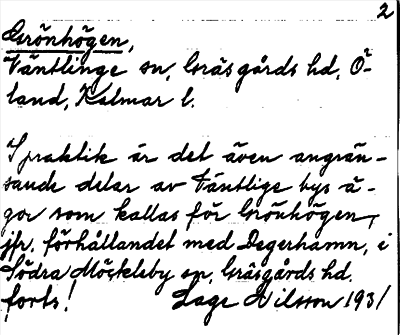 2
Grönhögen,
Väntlinge sn, Gräsgårds hd, Ö-
land, Kalmar l.
I praktik är det även angrän-
sande delar av Väntlige bys ä-
gor som kallas för Grönhögen,
jfr. förhållandet med Degerhamn, i
Södra Möckleby sn, Gräsgårds hd.
forts! Lage Nilsson 1931